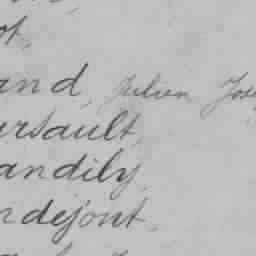 ot,
and, Julien Jos
ursault,
andily,
ndejont,